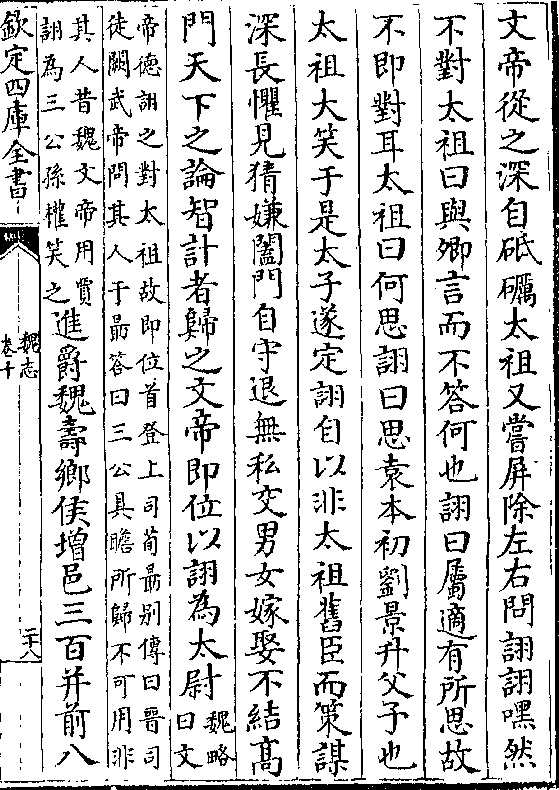 文帝從之深自砥礪太祖又嘗屏除左右問詡詡嘿然
不對太祖曰與卿言而不答何也詡曰屬適有所思故
不即對耳太祖曰何思詡曰思袁本初劉景升父子也
太祖大笑于是太子遂定詡自以非太祖舊臣而策謀
深長懼見猜嫌闔門自守退無私交男女嫁娶不結髙
門天下之論智計者歸之文帝即位以詡為太尉
魏略
曰文
帝德詡之對太祖故即位首登上司荀勗别傳曰晉司
徒闕武帝問其人于勗答曰三公具瞻所歸不可用非
其人昔魏文帝用賈
詡為三公孫權笑之
進爵魏壽鄉侯增邑三百并前八
欽定四庫全書
魏志
卷十
二十八